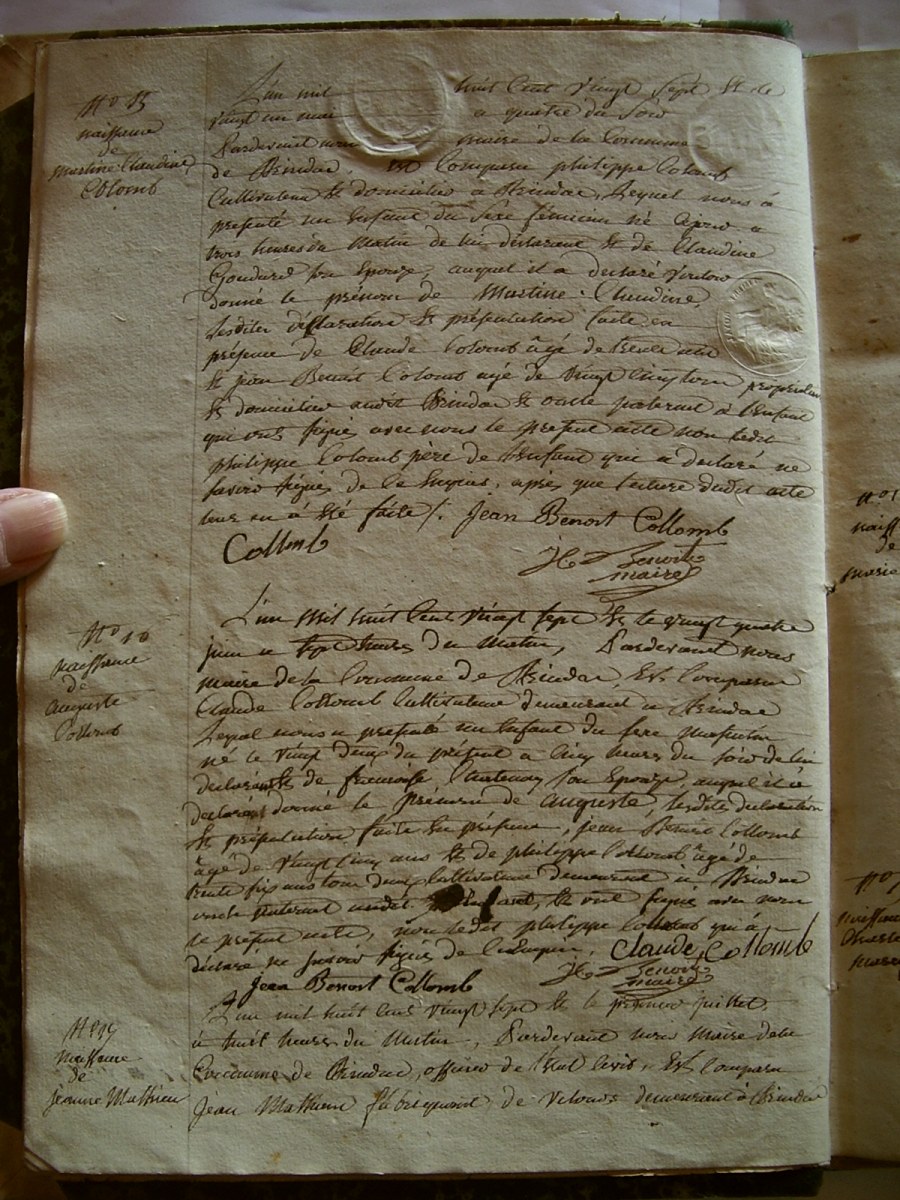 No 15
naissance
de
Martine Claudine
Colomb
L'an mil huit Cent vingt Sept et le
vingt un mai a quatre du Soir
Pardevant nous maire de la Commune
de est Comparu philippe Colomb
Cultivateur et domicilié a Lequel nous a
presenté un Enfant du Sexe féminin né a
trois heures du Matin de lui déclarant et de Claudine
son Epouze, auquel il a declaré Vouloir
donné le prénom de Martine Claudine,
lesdites déclaration et présentation faite en
présence de Claude Colomb âgé de trente ans
et jean Benoit Colomb agé de vingt Cinq tous proprietaires
et domicilies audit et oncle paternel a l'Enfant
qui ont signé avec nous le present acte non ledit
philippe Colomb père de l'enfant qui a declaré ne
savoir signer de ce Enquis, après que lecture dudit acte
leur en a été faite /. Jean Benoit Collomb
Collomb
Benoit
maire
No 16
naissance
de
Auguste
Collomb
L'an Mil huit Cent vingt sept et le vingt quatre
juin a Sept heures du Matin, Pardevant nous
maire de la Commune de Est Comparu
Claude Collomb Cultivateur demeurant a
Lequel nous a presenté un Enfant du sexe Masculin
né le vingt deux du présent a Cinq heures du Soir de lui
declarant et de francoise son Epouze, auquel il a
declaré donné le Prénom de Auguste, lesdite declaration
et présentation faite En présence, jean Benoit Collomb
âgé de vingt Cinq ans et de philippe Collomb âgé de
trente six ans tous deux Cultivateurs demeurant a
oncle paternel audit Enfant, et ont signé avec nous
le present acte, non ledit philippe Collomb qui a
déclaré ne savoir signer de Enquis. Claude Collomb
Jean Benoit Collomb Benoit
maire
naissance
de
Jeanne Mathieu
L'an mil huit Cent vingt sept et le premier juillet
a huit heures du Matin, Pardevant nous Maire de la
Commune de officier de l'Etat Civil, Est Comparu
Jean Mathieu fabriquant de Velours demeurant à